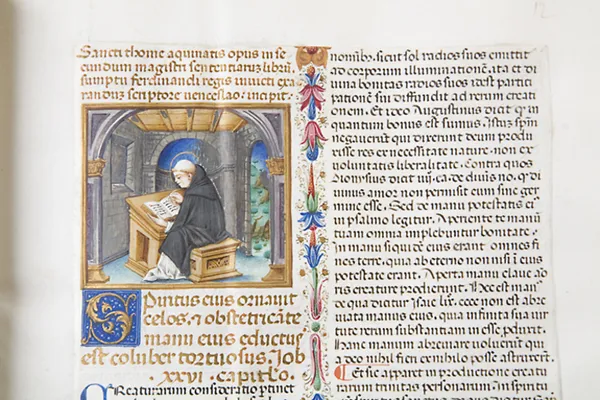 Sancti thome aquinatis opus in se
cundum magistri sententiarum librū.
sumptu ferdinandi regis inuicti exa
randuz scriptore venceslao: incipit.
Spiritus eius ornauit
celos, ⁊ obstetricāte
manu eius eductus
est coluber tortuosus. Iob
.xxvi. capitlo.
Creaturarum consideratio ptinet
nomīb⁹. sicut sol radios suos emittit
ad corporum illuminationē. ita et di
uina bonitas radios suos idest partici
pationē sui diffundit ad rerum creati
onem. Et ideo Augustinus dicit q̄ in
quantum bonus est sumus. Istuz
negauerūt qui dixerunt deum produ
isse res ex necessitate nature. non ex
voluntatis liberalitate. Contra quos
Dionysius dicit iiij. ca. de diuīs no. q̄ di
uinus amor non permisit eum sine ger
mine esse. Sed de manu potestatis ei
in psalmo legitur. Aperiente te manū
tuam omnia implebuntur bonitate.
In manu siqdē eius erant omnes fi
nes terre. quia ab eterno non nisi ī eius
potestate erant. Aperta manu claue ao
ris creature prodierunt. Hec est man⁹
de qua dicitur Isaie lix. ecce non est abre
uiata manus eius. quia infinita sua vir
tute rerum substantiam in esse pduxit.
Hanc manum abreuiare voluerūt qui
a deo nihil fieri ex nihilo posse astruxerūt.
Et sic apparet in productione creatu
rarum trinitas personarum. In spiritu